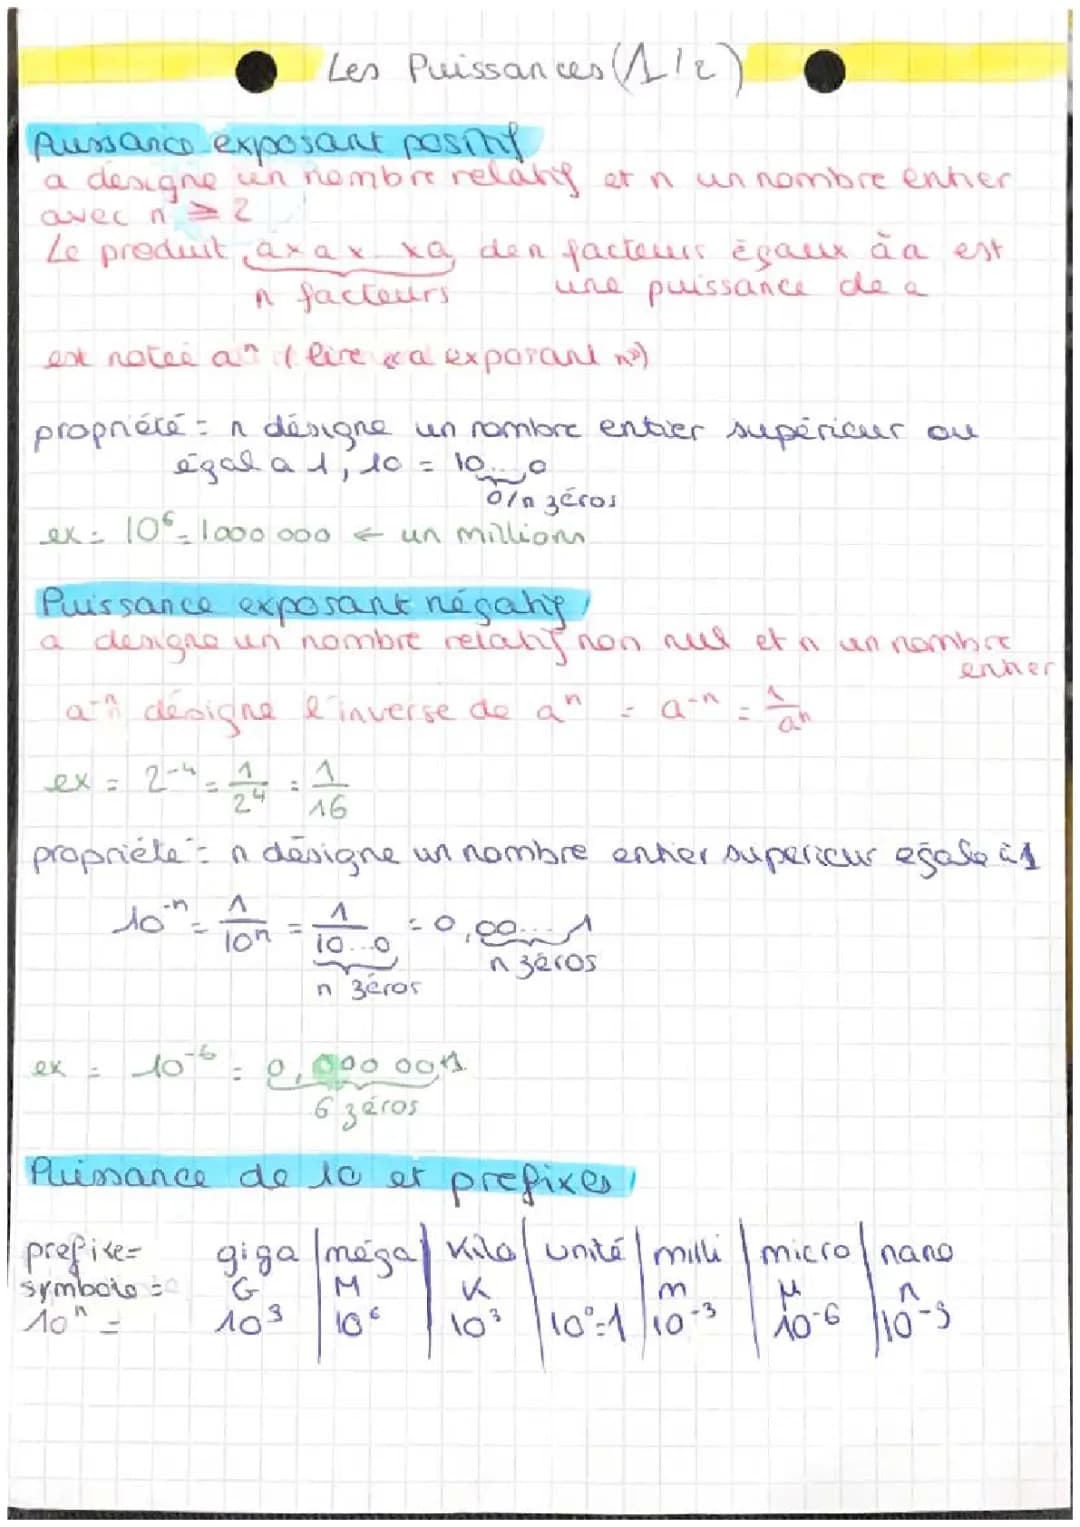 Les Puissances (1/2)
Puissance exposant positif
a designe un nombre relatif et n un nombre entier
avec n ⩾ 2
Le produit a x a x xa de n facteurs égaux à a est
n facteurs une puissance de a
est notée aⁿ (lire « a exposant n »)
propriété = n désigne un nombre entier supérieur ou
égal a 1, 10 = 10...0
0/n zéros
ex = 10⁶ = 1000 000 ← un millions
Puissance exposant négatif
a designe un nombre relatif non nul et n un nombre
entier
a⁻ⁿ désigne l'inverse de aⁿ = a⁻ⁿ = 1/aⁿ
ex = 2⁻⁴ = 1/2⁴ = 1/16
propriété = n désigne un nombre entier superieur egale à 1
10⁻ⁿ = 1/10ⁿ = 1/10...0 = 0,00...1
n zéros n zéros
ex = 10⁻⁶ = 0,000 001
6 zéros
Puissance de 10 et prefixes
prefixe = giga | méga | Kilo | unité | milli | micro | nano
symbole = G M K m μ n
10ⁿ = 10⁹ 10⁶ 10³ 10⁰=1 10⁻³ 10⁻⁶ 10⁻⁹